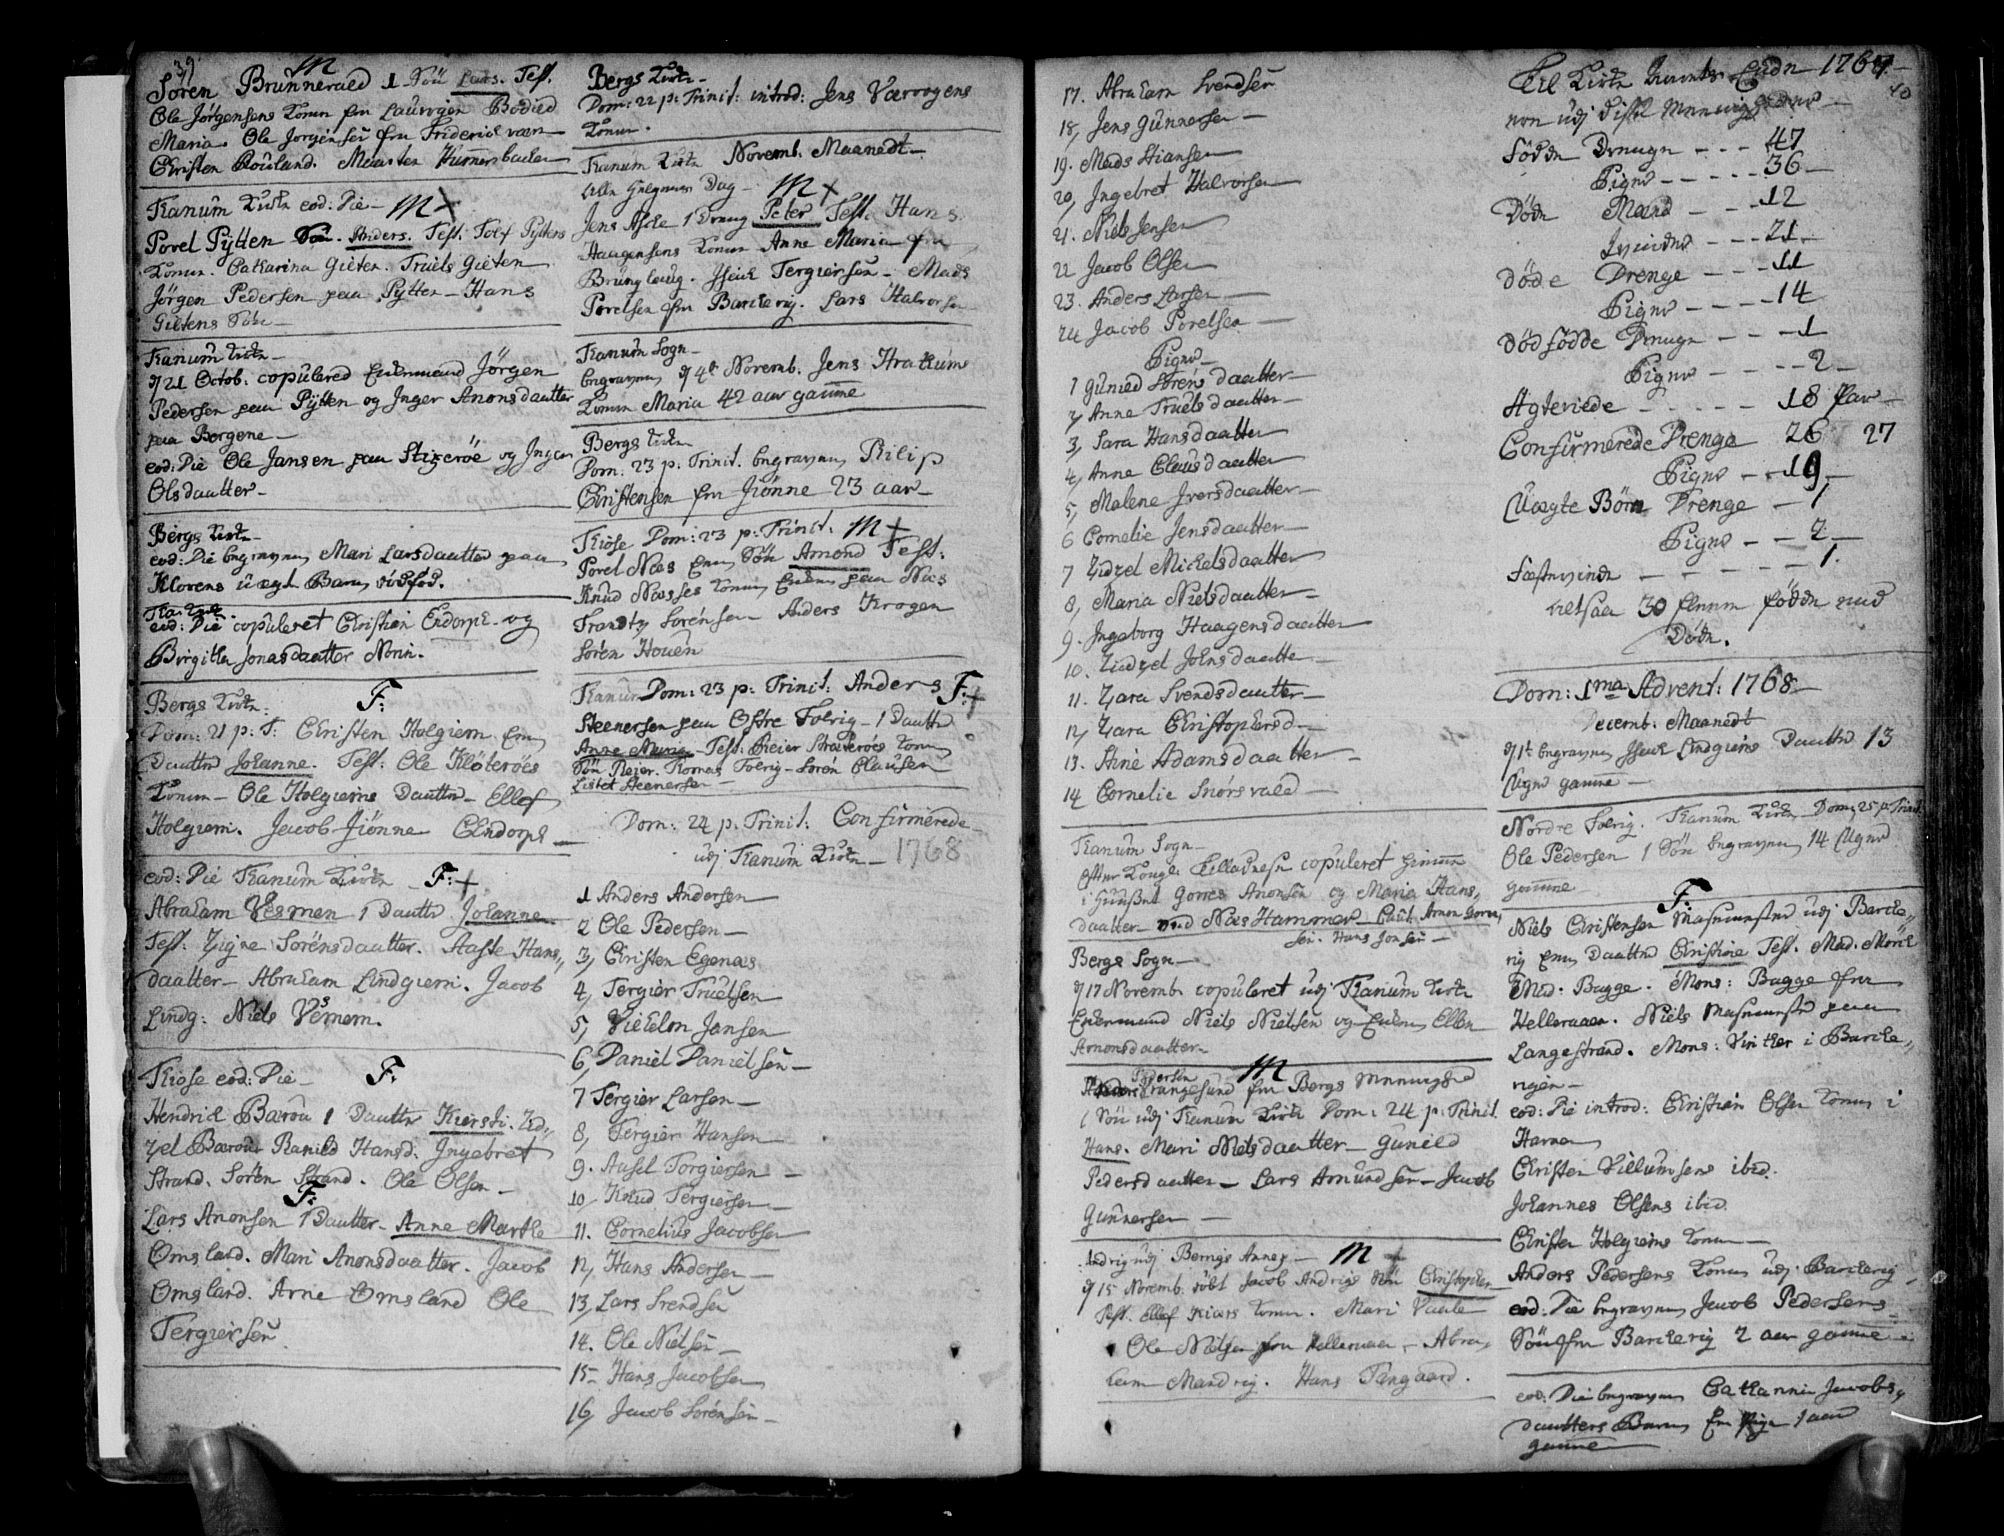 39.
M
Sören Brunnevald 1 Sön Lars. Test.
Ole Jörgensens Konen fra Laurvigen Bodild
Maria. Ole Jorgensen fra Friderichværn
Christen Rouland. Maarten Hummerbacken
Tranum Kirke eod: Die M
Povel Pÿtten Sön. Anders. Test. Tolf Pÿttens
Konen. Catharina Gieten. Truels Gieten
Jörgen Pedersen paa Pÿtten Hans
Gietens Sön
Tranum Kirke
d 21 Octob: copulered Enkemand Jörgen
Pedersen paa Pÿtten og Inger Anonsdaatter
paa Bergene
eod: Die Ole Jansen paa Stigeröe og Inger
Olsdaatter
Bergs Kirke
eod: Die begraven Mari Larsdaatter paa
Klovens uægte Barn dödfød.
eod: Die copuleret Christian Endorph og
Birgithe Jonasdaatter Norin.
Bergs Kirke. F:
Dom: 21 p: T: Christen Holgiem en
Daatter Johanne. Test: Ole Klöteröes
Konen Ole Holgiems Daatter Ellef
Holgiem. Jacob Jiönne C Endorph
eod: Die Tranum Kirke F:
Abraham Vesmen 1 Daatter Johanne
Test: Zigne Sorënsdaatter. Aaste Hans
daatter Abraham Lindgiem. Jacob
Lindg: Niels Vesmem.
Kiose eod: Die F:
Hendrich Barou 1 Daatter Kiersti. Zid
zel Barou Ranild Hansd: Ingebret
Strand. Sorën Strand. Ole Olsen
F:
Lars Anonsen 1 Daatter Anne Marthe
Omsland. Mari Anonsdaatter. Jacob
Omsland. Arne Omsland Ole
Tergiersen
Bergs Kirke
Dom: 22 p: Trinit: introd: Jens Værvogens
Konen.
Tranum Kirke Novemb. Maanedt
Alle Helgenes Dag M
Jens Aschе 1 Dreng Peter Test. Hans
Haagensens Konen Anne Maria fra
Brunglaug. Isach Tergiersen Mads
Povelsen fra Barkevig. Lars Halvorsen
Tranum Sogn
begraven d 4de Novemb. Jens Strathums
Konen Maria 42 aar gamme
Bergs Kirke
Dom: 23 p: Trinit. begraven Philip
Christensen fra Jiönne 23 aar
Kiose Dom: 23 p: Trinit. M
Povel Næs en Sön Amond Test:
Knud Næsses Konen Enken paa Næs
Trondtz Sorënsen Anders Krogen
Sorën Houen
Tranum Dom: 23 p: Trinit: Anders F:
Steenersen paa Ostre Foevig 1 Daatter
Anne Maria Test. Reier Strateröes Konen
Sön Reier. Thomas Foevig Sorën Clausen
Listet Steenersen
Dom: 24 p: Trinit: Confirmerede
udj Tranum Kirke 1768
1 Anders Andersen
2 Ole Pedersen
3, Christen Egenæs
4, Tergier Truelsen
5, Vielchn Jansen
6, Daniel Danielsen
7 Tergier Larsen
8, Tergier Hansen
9. Aasel Torgiersen
10 Knud Tergiersen
11. Cornelius Jacobsen
12, Hans Andersen
13, Lars Svendsen
14. Ole Nielsen
15 Hans Jacobsen
16, Jacob Sorënsen
17. Abraham Svendsen
18, Jens Gunnersen
19. Mads Stiansen
20, Ingebret Halvorsen
21. Niels Jensen
22 Jacob Olsen
23. Anders Larsen
24 Jacob Povelsen
Piger
1 Gunild Sorens daatter
2, Anne Truels daatter
3, Sara Hansdaatter
4, Anne Clausdaatter
5, Malene Iversdaatter
6 Cornelie Jensdaatter
7 Zidzel Michelsdaatter
8, Maria Nielsdaatter
9. Ingeborg Haagensdaatter
10. Zidzel Johnsdaatter
11. Zara Svendsdaatter
12, Zara Christophersd
13. Aine Adamsdaatter
14 Cornelie Snorsvald
Tranum Sogn
Efter Konge: Tilladelse copuleret hiemme
i Huuset Gorres Anonsen og Maria Hans
daatter ved Næs Hammer Caut. Arnen Gorre
sen. Hans Jonsen
Bergs Sogn
d 17 Novemb. copuleret udj Tranum Kirke
Enkemand Niels Nielsen og Enken Ellen
Amonsdaatter
M
Pedersen Krangesund fra Bergs Menniged
1 Sön udj Tranum Kirke Dom: 24 p: Trinit.
Hans. Mari Nielsdaatter Gunild
Pedersdaatter Lars Amundsen Jacob
Gunnersen
Andrig udj Bergs Annex M
d 15 Novemb. döbt Jacob Andrigs Sön Christopher
Test. Ellef Kiærs Konen. Mari Vaale
Ole Nielsen fra Helleraaen Abra
ham Mandrig. Hans Tangaard.
Til Kirke Aarets Ende 1767
40
ere udj disse Menigheder
Födde Drenge 47
Piger 36
Döde Mænd 12
Qvinder 21
Döde Drenge 11
Piger 14
Dödfödde Drenge 1
Piger 2
Agteviede 18 Par
Confirmerede Drenge 26 27
Piger 19
Uægte Börn Drenge 1
Piger 2
Fæsteqvinde 1.
altsaa 30 fleere födde end
Döde.
Dom: 1ma Advent: 1768
Decemb. Maanedt
d 1te begraven Isach Lindgiems Daatter 13
Uger gamme
Nordre Foevig. Tranum Kirke Dom: 25 p: Trinit.
Ole Pedersen 1 Sön begraven 14 Uger
gamme
F:
Niels Christensen Masmester udj Barke
vig en Daatter Christine Test. Mad. Morch
Mad: Bagge. Mons: Bagge fra
Helleraaen. Niels Masmester paa
Langestrand. Mons: Vinther i Barke
vigen
eod: Die introd: Christian Olsen Konen i
Havnen
Christen Villumsens ibid.
Johannes Olsens ibid
Christen Holgiems Konen
Anders Pedersens Konen udj Barkevig
eod: Die begraven Jacob Pedersens
Sön fra Barkevig 2 aar gamme
eod: Die begraven Catharine Jacobs
daatters Barn en Pige 1 aar
gamme